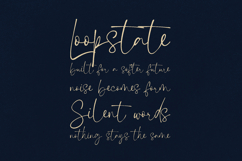 Loopstate
built for a softer future
noise becomes form
Silent words
nothing stays the same